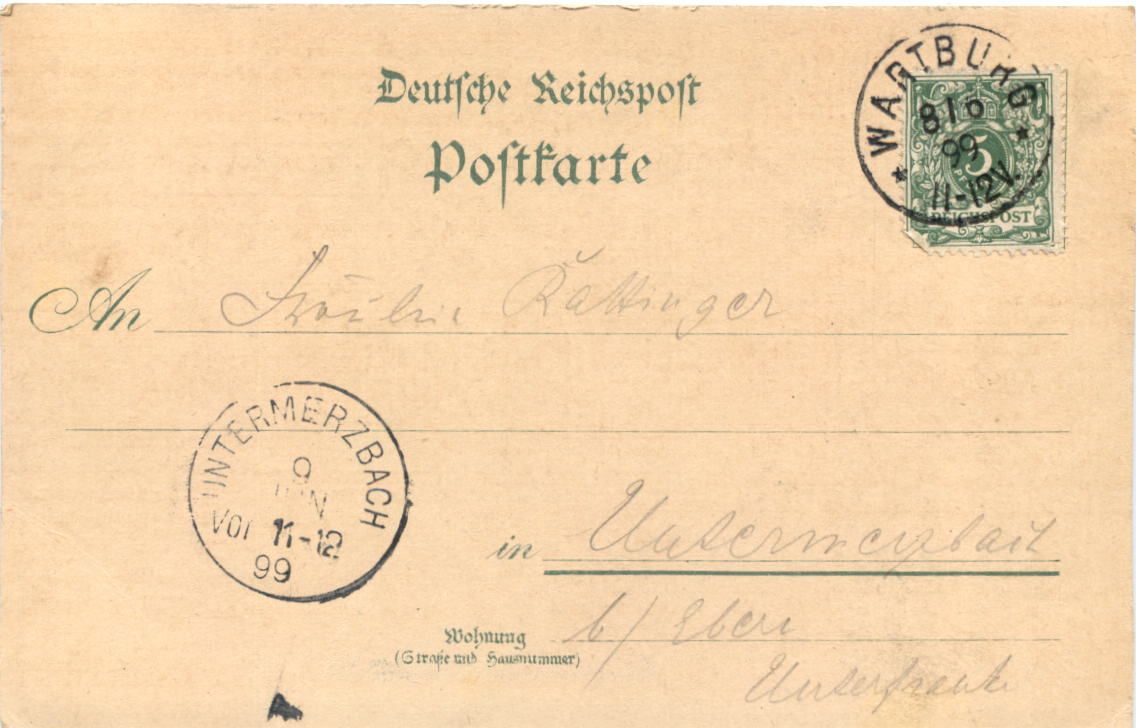 Deutsche Reichspost
Postkarte
WARTBURG
8 6
99
11-12V.
5
PF
REICHSPOST
An Fräulein Rättinger
UNTERMERZBACH
9
JUN
Vor 11-12
99
in Untermerzbach
b/ Ebern
Wohnung
(Straße und Hausnummer)
Unterfranken